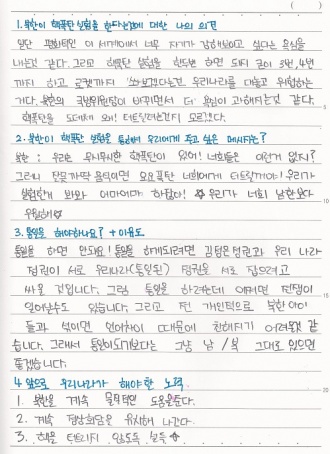 ( )
1. 북한이 핵폭탄 실험을 한다는것에 대한 나의 의견
일단 평화적인 이 세계에서 너무 자기가 강해보이고 싶다는 욕심을
내는것 같다. 그리고 핵폭탄 실험을 한두번 하면 되지 굳이 3번, 4번
까지 하고 로켓까지 쏘아보겠다는건 우리나라를 대놓고 위협하는
거다. 북한의 국방위원장이 바뀌면서 더 욕심이 과해지는것 같다.
핵폭탄을 도대체 왜! 터트리려는건지 모르겠다.
2. 북한이 핵폭탄 실험을 통해서 우리에게 주고 싶은 메시지는?
북한 : 우리는 무시무시한 핵폭탄이 있어! 너희들은 이런거 없지?
그러니 까불지마 움직이면 우리 폭탄 너희에게 터트릴거야! 우리가
실험한걸 봐봐 어마어마 하잖아! ☆우리가 너희 남한보다
우월해☆
3. 통일을 해야하나요? + 이유도
통일을 하면 안되요! 통일을 하게되려면 김정은정권과 우리 나라
정권이 서로 우리나라(통일된) 정권을 서로 잡으려고
싸울 것입니다. 그럼 통일을 하려는데 어쩌면 전쟁이
일어날수도 있습니다. 그리고 전 개인적으로 북한 아이
들과 섞이면 언어차이 때문에 친해지기 어려울것 같
습니다. 그래서 통일이되기보다는 그냥 남/북 그대로 있으면
좋겠습니다.
4. 앞으로 우리나라가 해야할 노력
1. 북한을 계속 물질적인 도움을준다.
2. 계속 정상회담을 유지해 나간다.
3. 핵을 터트리지 않도록 설득
5
10
15
20